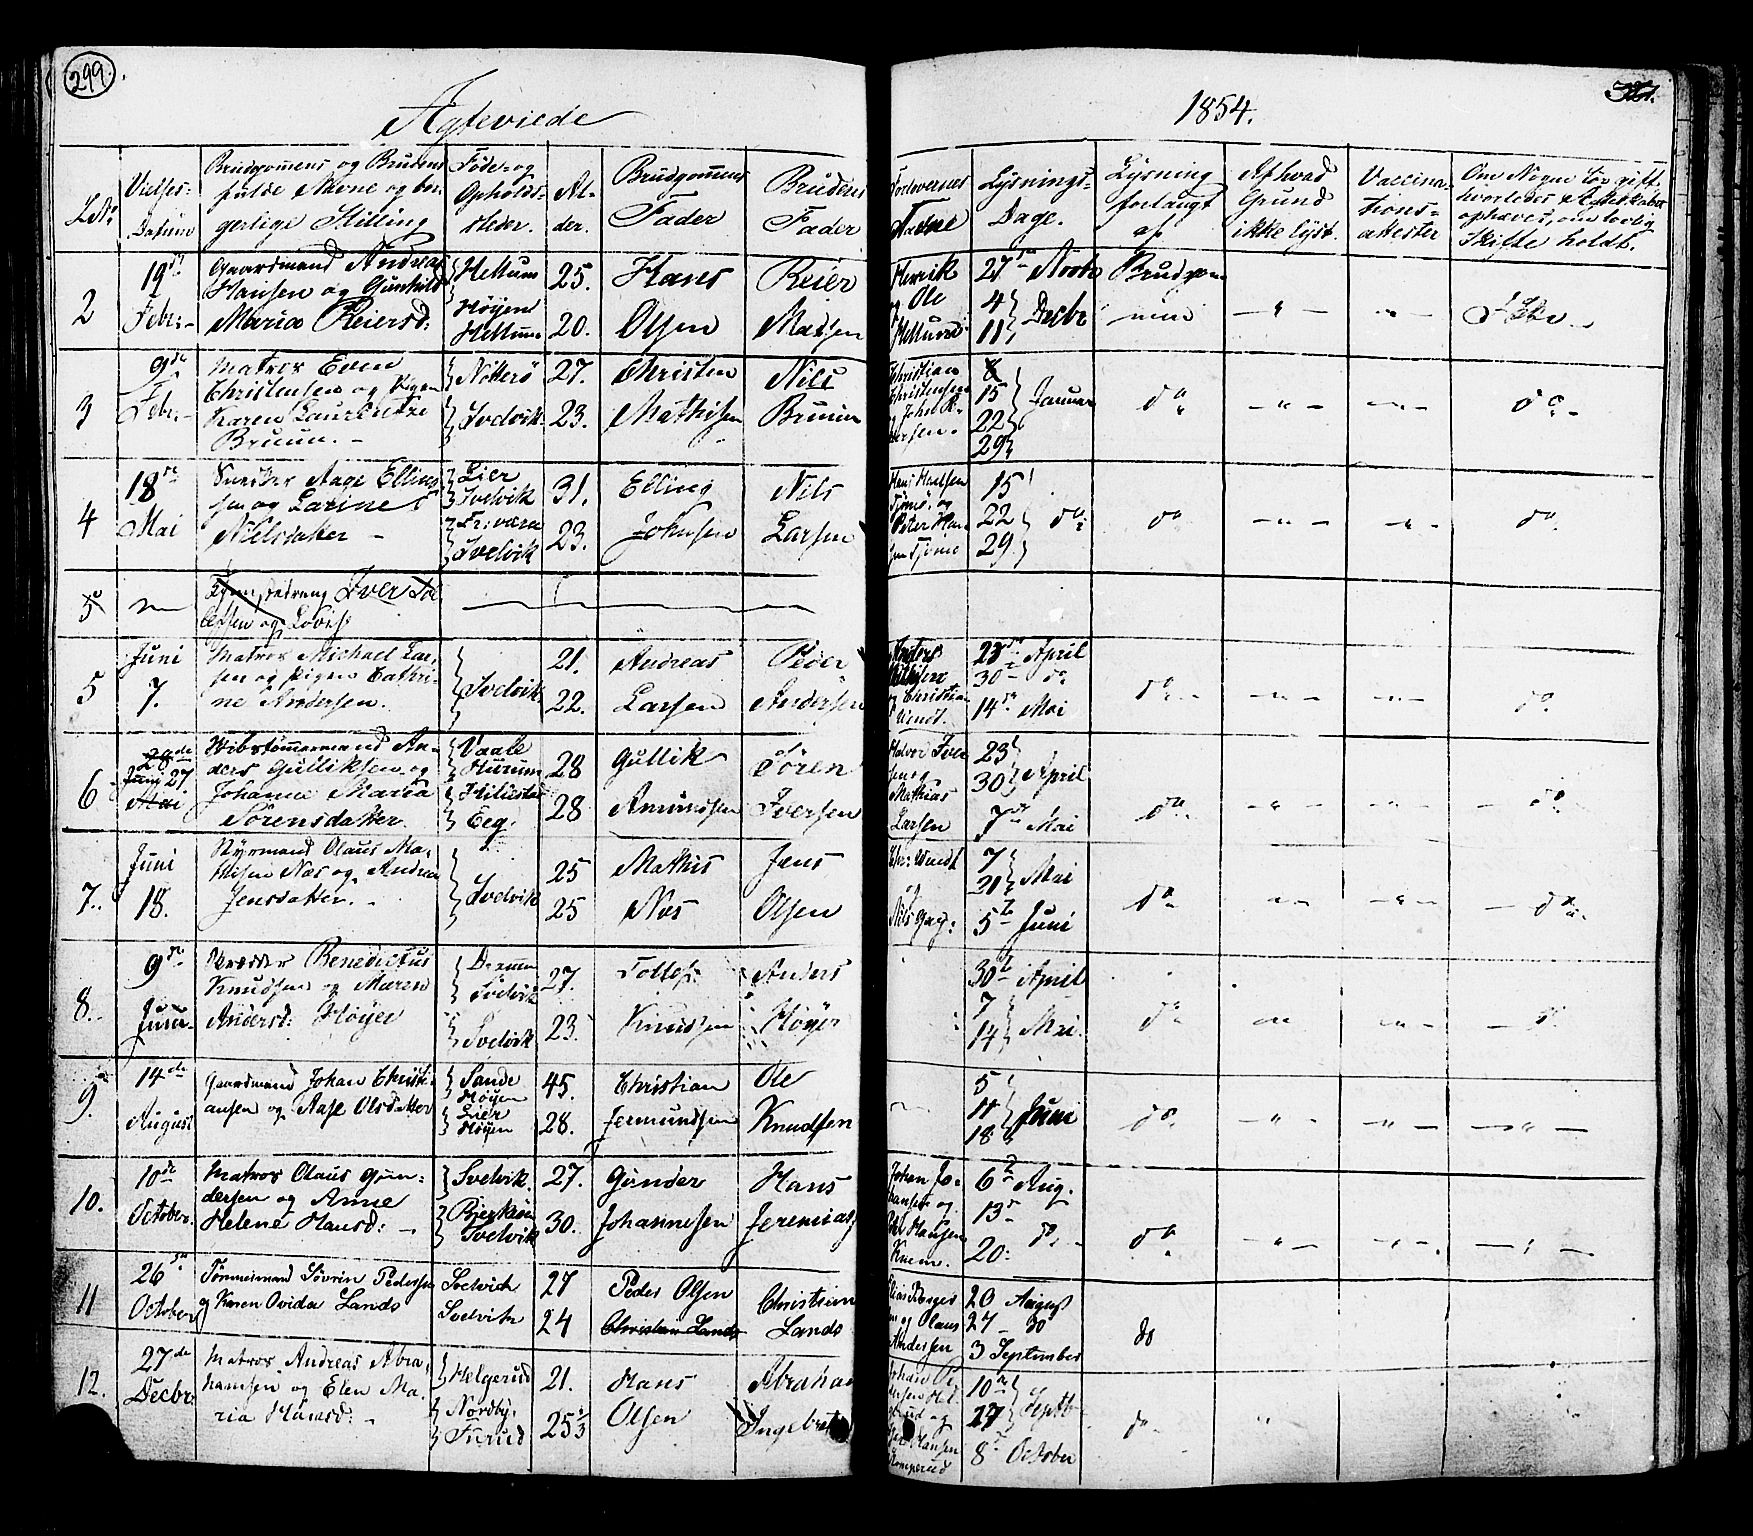 299.
Ægteviede
1854.
321.
LNr.
Vielses-
Datum
Brudgommens og Brudens
fulde Navne og bor-
gerlige Stilling
Føde- og
Opholds-
Steder.
Al-
der.
Brudgommens
Fader
Brudens
Fader
Forlovernes
Navne
Lysnings-
Dage.
Lysning
forlangt
af
Af hvad
Grund
ikke lyst.
Vaccina-
tions-
attester
Om Nogen før gift,
hvorledes Ægteskabet
ophævet, om lovlig
Skifte holdt.
2
19de
Febr:
Gaardmand Andreas
Hansen og Gunhild
Maria Reiersd:
Hellum
Høyen
Hellum
25.
20.
Hans
Olsen
Reier
Madsen
Henrik
og Ole
Hellum
27de Novbr
4
11
Decbr
Brudgom
men
3
9de
Febr.
Matros Even
Christensen og Pigen
Karen Laurentze
Bruun.
Nøtterø
Svelvik
27.
23.
Christen
Mathisen
Nils
Bruun
Christian
Christensen
8
15
22
29
Januar
do
do
4
18de
Mai
Aage Elling
sen og Larine
Nielsdatter
Lier
Svelvik
Svelvik
31.
23.
Elling
Johnsen
Nils
Larsen
Peter Han
sen
15
22
29
do
do
do
5
Iver
og Lovise
5
Juni
7.
Matros Michael Lar-
sen og Pigen Cathri-
ne Andersen.
Svelvik
21.
22.
Andreas
Larsen
Peder
Andersen
Anders
Christian
Wendt.
23de April
30 do
14de Mai
do
do
6
28de
Juni 27
Mai
Skibstømmermand An-
ders Gulliksen og
Johanne Maria
Sørensdatter
Vaale
Hurum
Eeg.
28
28
Gullik
Amundsen
Søren
Iversen
Halvor Iver
sen og
Mathias
Larsen
23
30
April
7de Mai
do
do
7.
Juni
18.
Styrmand Olaus Ma-
thisen Næs og Andrea
Jensdatter.
Svelvik
25
25
Mathis
Næs
Jens
Olsen
Chr: Wendt
og
7
21
Mai
5te Juni
do
do
8.
9de
Juni
Skrædder Benedictus
Knudsen og Maren
Andersd: Høyer
Drammen
Svelvik
Svelvik
27.
23.
Tollef
Knudsen
Anders
Høyer
30te April
7
14
Mai.
do
9.
14de
August
Gaardmand Johan Christi-
ansen og Aase Olsdatter
Sande
Høyen
Lier
Høyen
45.
28.
Christian
Jermundsen
Ole
Knudsen
5
11
18
Juni
do
10.
10de
October
Matros Olaus Gun-
dersen og Anne
Helene Hansd:
Svelvik
Svelvik
27.
30.
Gunder
Johannesen
Hans
Jeremias
Johan Jo-
hansen og
Hansen
Knem.
6te Aug.
13de
20.
do
do
11
26de
October
Tømmermand Søvrin Pedersen
og Karen Ovida Lands
Svelvik
Svelvik
27
24
Peder Olsen
Christian Lands
Christian
Lands
Elias Borges
en og Olaus
Andersen
20 August
27 do
3 September
do
12.
27de
Decbr.
Matros Andreas Abra-
hamsen og Elen Ma-
ria Hansd:
Helgerud
Nordby
Furud
21.
25 1/3
Hans
Olsen
Abraham
Ingebret
Hansen
Romperud
10de
27
Septb
8de October
do